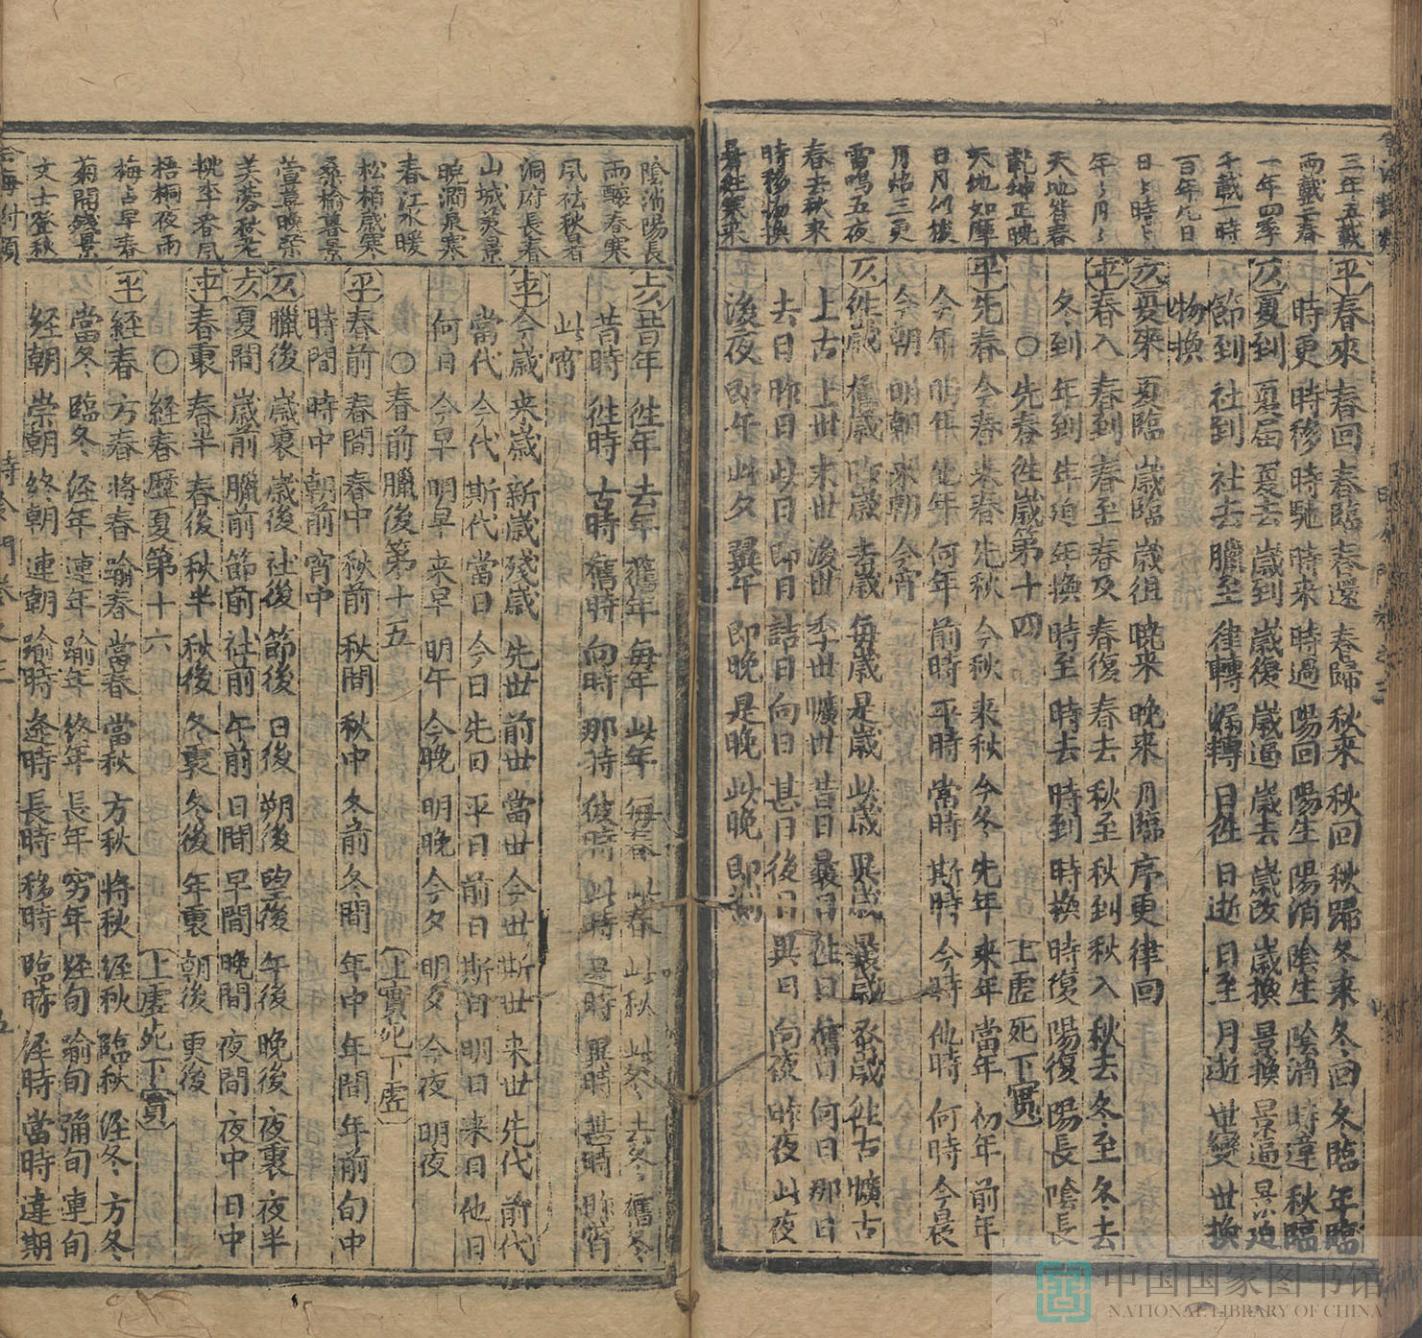 三年五載
兩戴三春
一年四季
千載一時
百年九日
日〻時〻
年〻月〻
天地皆春
乾坤正曉
天地如摩
日月似梭
月焰三更
雷鳴五夜
春去秋來
時移物換
暑往寒來
平春來 春回 春臨 春還 春歸 秋來 秋回 秋歸 冬來 冬回 冬臨 年臨
時更 時移 時馳 時來 時過 陽回 陽生 陽消 陰生 陰消 時違 秋臨
仄夏到 夏屆 夏去 歲到 歲復 歲逼 歲去 歲改 歲換 景換 景逼 景迫
節到 社到 社去 臘至 律轉 漏轉 日徃 日逝 日至 月逝 世變 世換
物換
仄夏來 夏臨 歲臨 歲徂 曉來 晚來 月臨 序更 律回
平春入 春到 春至 春及 春復 春去 秋至 秋到 秋入 秋去 冬至 冬去
冬到 年到 年迫 年換 時至 時去 時到 時換 時復 陽復 陽長 陰長
○先春徃歲第十四 上虛死下實
平先春 今春 來春 先秋 今秋 来秋 今冬 先年 来年 當年 初年 前年
今年 明年 他年 何年 前時 平時 常時 斯時 今時 他時 何時 今晨
今朝 明朝 來朝 今宵
仄徃歲 舊歲 昨歲 去歲 每歲 是歲 此歲 異歲 最歲 來歲 徃古 曠古
上古 上世 末世 後世 季世 曠世 昔日 最日 徃日 舊日 何日 那日
去日 昨日 此日 即日 詰日 向日 甚日 後日 異日 向夜 昨夜 此夜
後夜 即午 此夕 翼午 即晚 是晚 此晚 即刻
陰消陽長
雨釀春寒
風祛秋暑
洞府長春
山城炎景
曉澗泉寒
春江水暖
松栢歲寒
桑榆暮景
萱草曉榮
芙蓉秋老
桃李春風
梧桐夜雨
梅占早春
菊開殘景
文士登秋
仄昔年 徃年 去年 舊年 每年 此年 每春 此春 此秋 此冬 去冬 舊冬
昔時 徃時 古時 舊時 向時 那時 彼時 此時 是時 異時 甚時 昨宵
此宵
平今歲 来歲 新歲 殘歲 先世 前世 當世 今世 斯世 来世 先代 前代
當代 今代 斯代 當日 今日 先日 平日 前日 斯日 明日 来日 他日
何日 今早 明早 来早 明午 今晚 明晚 今夕 明夕 今夜 明夜
○春前臘後第十五 上實死下虛
平春前 春間 春中 秋前 秋間 秋中 冬前 冬間 年中 年間 年前 旬中
時間 時中 朝前 宵中
仄臘後 歲裏 歲後 社後 節後 日後 朔後 望後 年後 晚後 夜裏 夜半
仄夏間 歲前 臘前 節前 社前 午前 日間 早間 晚間 夜間 夜中 日中
平春裏 春半 春後 秋半 秋後 冬裏 冬後 年裏 朝後 更後
○経春歷夏第十六 上虛死下實
平経春 方春 將春 踰春 當春 當秋 方秋 將秋 経秋 臨秋 経冬 方冬
當冬 臨冬 経年 連年 踰年 終年 長年 穷年 経旬 踰旬 彌旬 連旬
経朝 崇朝 終朝 連朝 踰時 逢時 長時 移時 臨時 経時 當時 違期